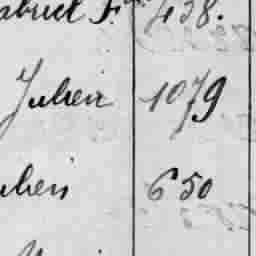 abriel F. 438.
Julien 1079
ulien 650